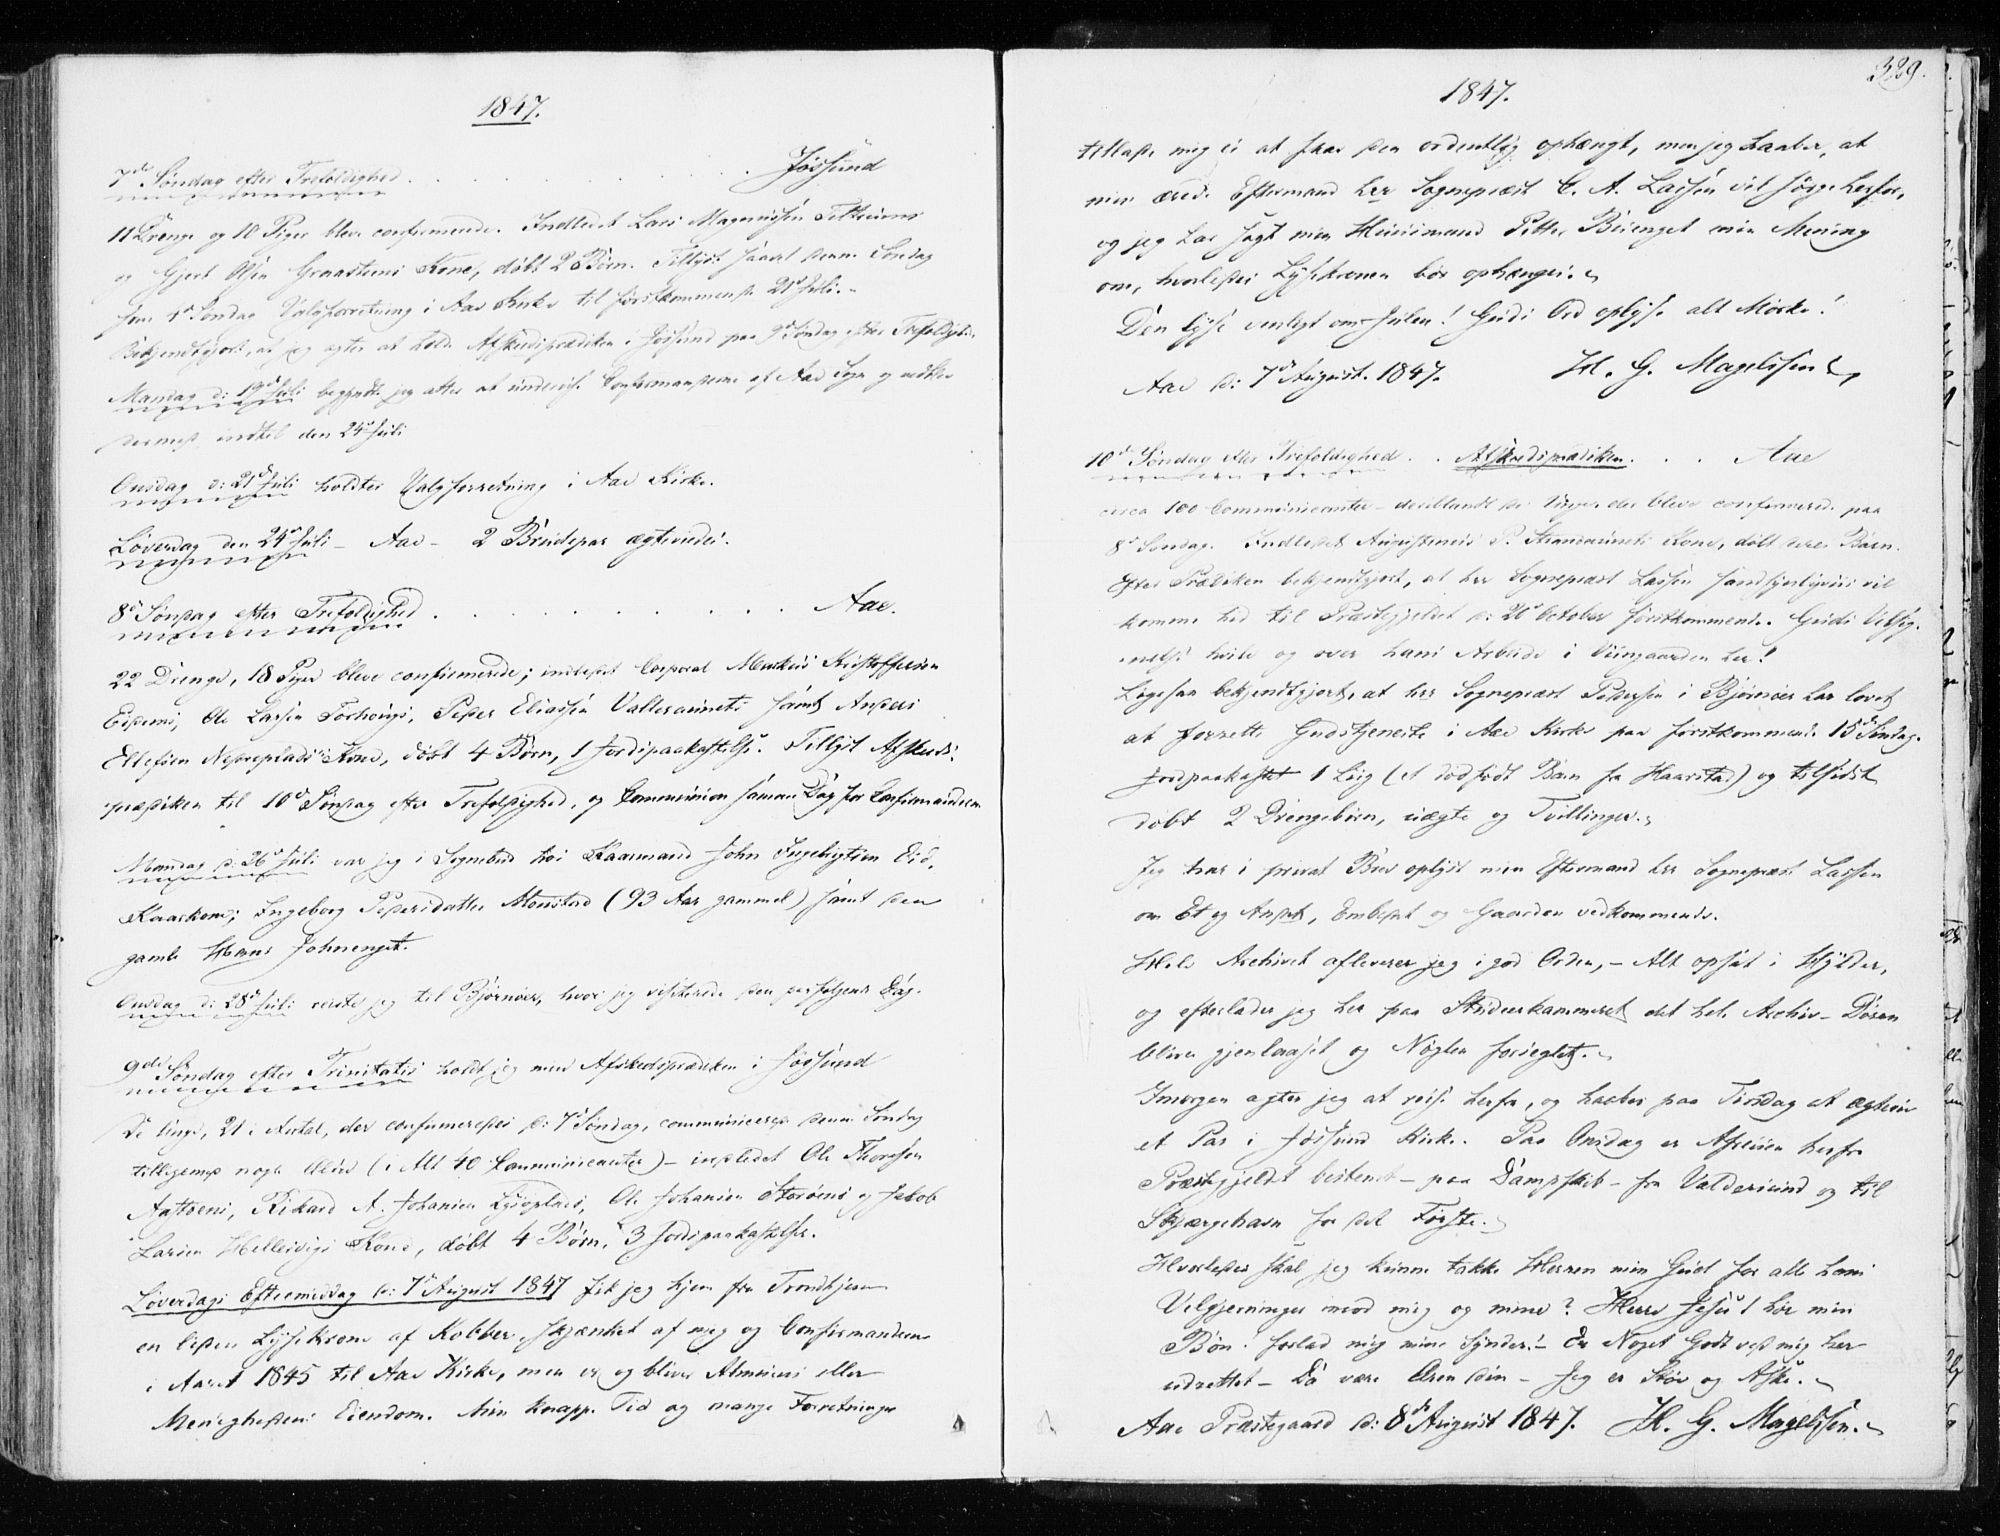 1847.
7de Søndag efter Trefoldighed . . . . . . . . . . Jøssund
11 Drenge og 10 Piger bleve confirmerede. Indledet Lars Magnussen
og Gjert Olsen Graasteens Kone, døbt 2 Børn. Tillyst saavel denne Søndag
som 4de Søndag Valgforretning i Aae Kirke til førstkommende 21de Juli.
Bekjendtgjort, at jeg agter at holde Afskedsprædiken i Jøssund paa 9de Søndag efter Trefoldighed.
Mandag d: 19de Juli begyndte jeg atter at undervise Confirmanderne af Aae Sogn og
dermed indtil den 24de Juli
Onsdag d: 21de Juli holdtes Valgforretning i Aae Kirke.
Løverdag den 24de Juli – Aae – 2 Brudepar ægteviede.
8de Søndag efter Trefoldighed . . . . . . . . . . Aae.
22 Drenge, 18 Piger bleve confirmerede; indledet Corporal Markus Kristoffersen
Ole Larsen Torhougs, Peder Eliassen Valleraunets samt Anders
Ellefsen Nedreplads's Kone, døbt 4 Børn, 1 Jordspaakastelse. Tillyst Afskeds-
prædiken til 10de Søndag efter Trefoldighed, og Communion samme Dag for Confirmanderne
Mandag d: 26de Juli var jeg i Sognebud hos Kaarmand John Ingebrigtsen Eid,
Kaarkone; Ingeborg Pedersdatter Monstad (93 Aar gammel) samt den
gamle Hans Johnenget.
Onsdag d: 28de Juli reiste jeg til Bjørnøer, hvor jeg visiterede den paafølgende Dag.
9de Søndag efter Trinitatis holdt jeg min Afskedsprædiken i Jøssund
De unge, 21 i Antal, der confirmeredes d: 7de Søndag, communicerede denne Søndag
tilligemed nogle Andre (i Alt 40 Communicanter) – indledet Ole Thoresen
Rikard A. Johansen Lysøplads, Ole Johansen Storøens og Jakob
Larsen Hellesvigs Kone, døbt 4 Børn, 3 Jordspaakastelser.
Løverdags Eftermiddag d: 7de August 1847 fik jeg hjem fra Trondhjem
en liden Lysekrone af Kobber, skjænket af mig og Confirmanderne
i Aaret 1845 til Aae Kirke, men er og bliver Almuens eller
Menighedens Eiendom. Min knappe Tid og mange Forretninger
329.
1847.
tillade mig ei at faae den ordentlig ophængt, men jeg haaber, at
min ærede Eftermand herr Sognepræst C. A. Lassen vil sørge herfor,
og jeg har sagt min Huusmand Petter Bienget min Mening
om, hvorledes Lysekronen bør ophænges.
Den lyse venligt om Julen! Guds Ord oplyse alt Mørke!
Aae d: 7de August 1847. H. G. Magelssen
10de Søndag efter Trefoldighed . . Afskedsprædiken . . . Aae
circa 100 Communicanter – deriblandt de Unge, der bleve confirmerede paa
8de Søndag. Indledet Augustinus P. Strandaunets Kone, døbt deres Barn.
Efter Prædiken bekjendtgjort, at herr Sognepræst Lassen sandsynligviis vil
komme hid til Præstegjeldet d: 20de October førstkommende. Guds Velsig-
nelse hvile og over hans Arbeide i Viingaarden her!
Ligesaa bekjendtgjort, at herr Sognepræst Pedersen i Bjørnøer har lovet
at forrette Gudstjeneste i Aae Kirke paa førstkommende 15de Søndag.
Jordpaakastet 1 Liig (et dødfødt Barn fra Haarstad) og tilsidst
døbt 2 Drengebørn, uægte og Tvillinger.
Jeg har i privat Brev oplyst min Eftermand herr Sognepræst Lassen
om Et og Andet, Embedet og Gaarden vedkommende.
Hele Archivet afleverer jeg i god Orden, – Alt opsat i Hylder,
og efterlader jeg her paa Studeerkammeret det hele Archiv – Døren
bliver gjenlaaset og Nøglen forseglet.
Imorgen agter jeg at reise herfra, og haaber paa Tirsdag at ægtevie
et Par i Jøssund Kirke. Paa Onsdag er Afreisen herfra
Præstegjeldet bestemt – paa Dampskib – fra Valdersund og til
Skjærgehavn for det Første.
Hvorledes skal jeg kunne takke Herren min Gud for alle hans
Velgjerninger imod mig og mine? Herre Jesu! hør min
Bøn! forlad mig mine Synder! – Er Noget Godt ved mig her
udrettet – Da være Æren din – Jeg er Støv og Aske.
Aae Præstegaard d: 8de August 1847. H. G. Magelssen.